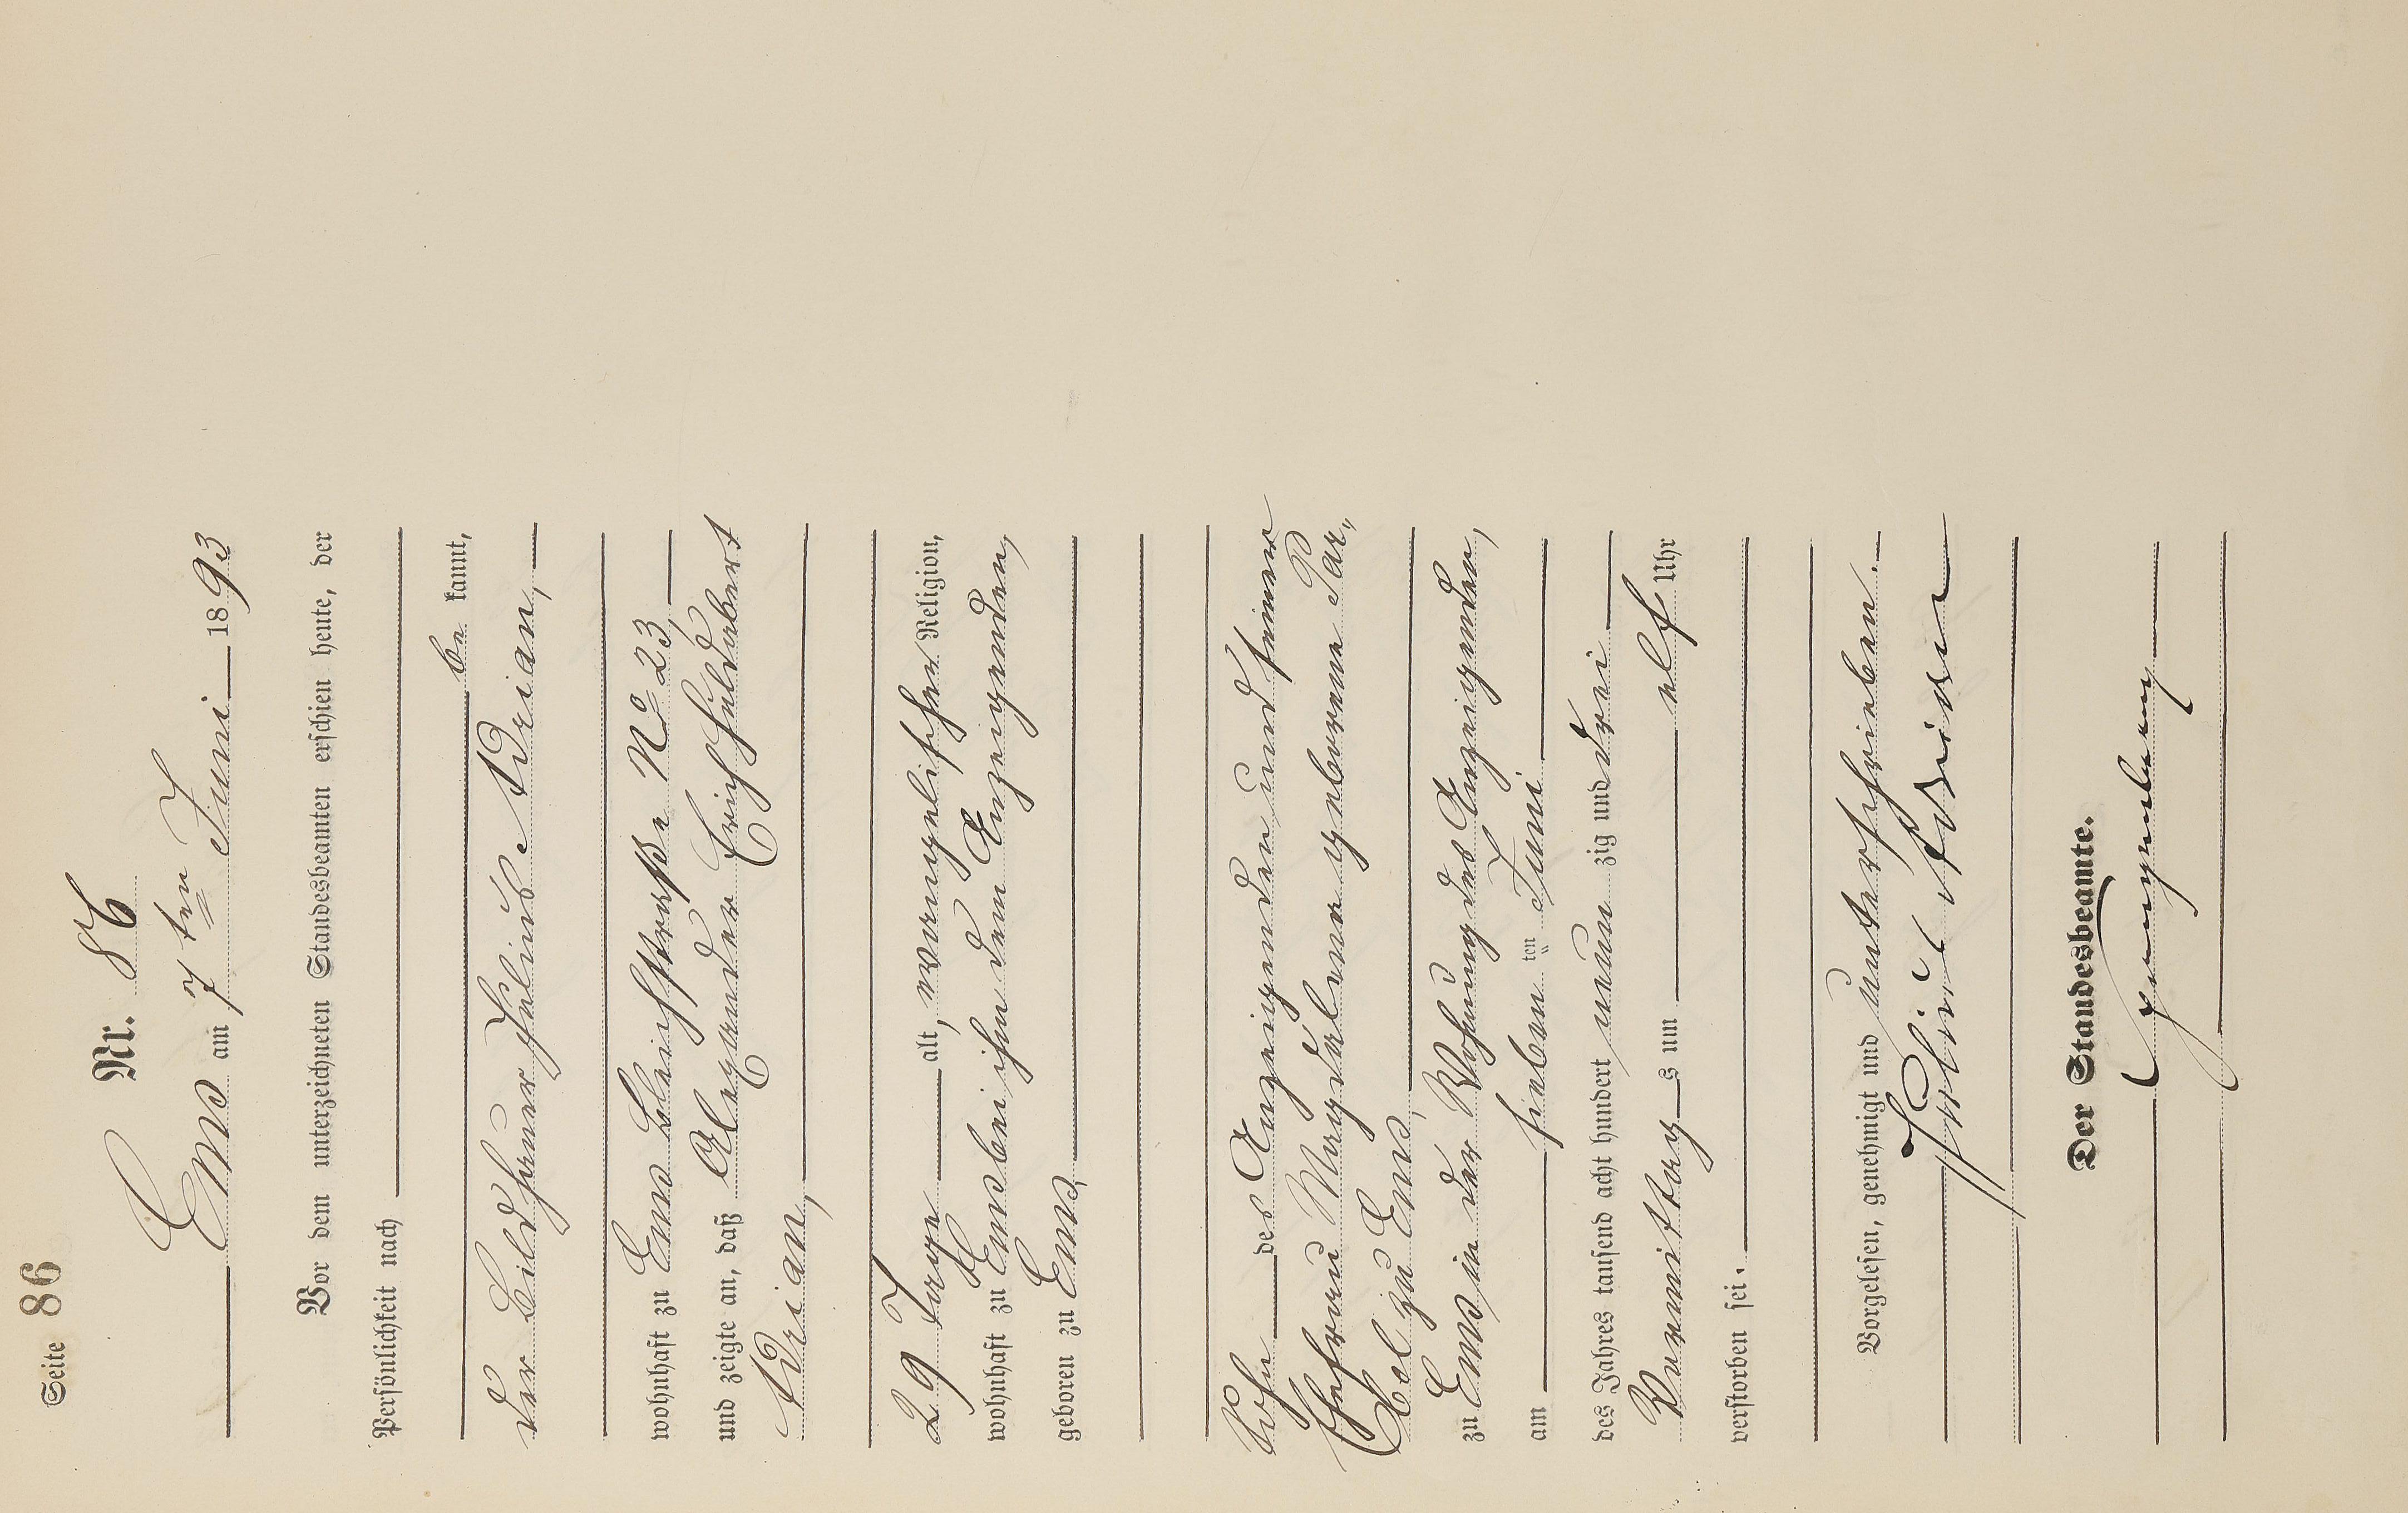 Seite 86
Nr. 86
Ems am 7ten Juni 1893
Vor dem unterzeichneten Standesbeamten erschien heute, der
Persönlichkeit nach
be kannt,
der Bildhauer Julius Adrian,
wohnhaft zu Ems Bleichstraße No 23,
und zeigte an, daß Alexander Erich Hildebert
Adrian,
29 Tage alt, evangelischer Religion,
wohnhaft zu Ems bei ihm dem Anzeigenden,
geboren zu Ems,
Sohn des Anzeigenden und seiner
Ehefrau Magdalena geborene Par„
cel zu Ems,
zu Ems in der Wohnung des Anzeigenden,
am sieben ten Juni
des Jahres tausend acht hundert neun zig und drei
Vormittag s um elf Uhr
verstorben sei.
Vorgelesen, genehmigt und unterschrieben.
Julius Adrian
Der Standesbeamte.